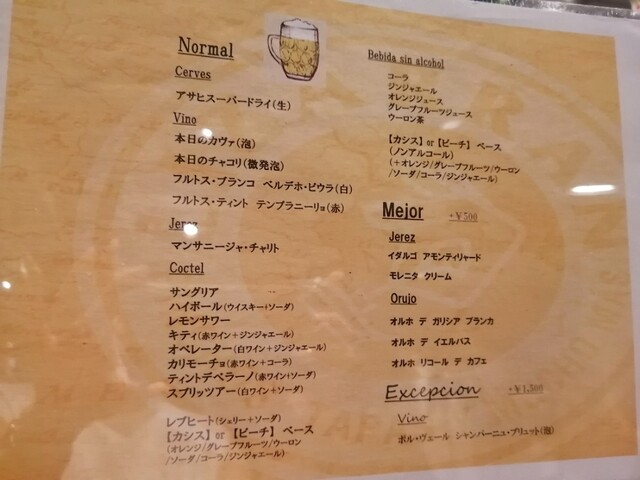 Normal
Cerves
アサヒスーパードライ(生)
Vino
本日のカヴァ(泡)
本日のチャコリ(微発泡)
フルトス・ブランコ ベルデホ・ビウラ(白)
フルトス・ティント テンプラニーリョ(赤)
Jerez
マンサニージャ・チャリト
Coctel
サングリア
ハイボール(ウイスキー+ソーダ)
レモンサワー
キティ(赤ワイン+ジンジャエール)
オペレーター(白ワイン+ジンジャエール)
カリモーチョ(赤ワイン+コーラ)
ティントデベラーノ(赤ワイン+ソーダ)
スプリッツアー(白ワイン+ソーダ)
レブヒート(シェリー+ソーダ)
【カシス】or【ピーチ】 ベース
(オレンジ/グレープフルーツ/ウーロン
/ソーダ/コーラ/ジンジャエール)
Bebida sin alcohol
コーラ
ジンジャエール
オレンジジュース
グレープフルーツジュース
ウーロン茶
【カシス】or【ピーチ】 ベース
(ノンアルコール)
(+オレンジ/グレープフルーツ/ウーロン
/ソーダ/コーラ/ジンジャエール)
Mejor +¥500
Jerez
イダルゴ アモンティリャード
モレニタ クリーム
Orujo
オルホ デ ガリシア ブランカ
オルホ デ イエルバス
オルホ リコール デ カフェ
Excepcion +¥1,500
Vino
ポル・ヴェール シャンパーニュ・ブリュット(泡)